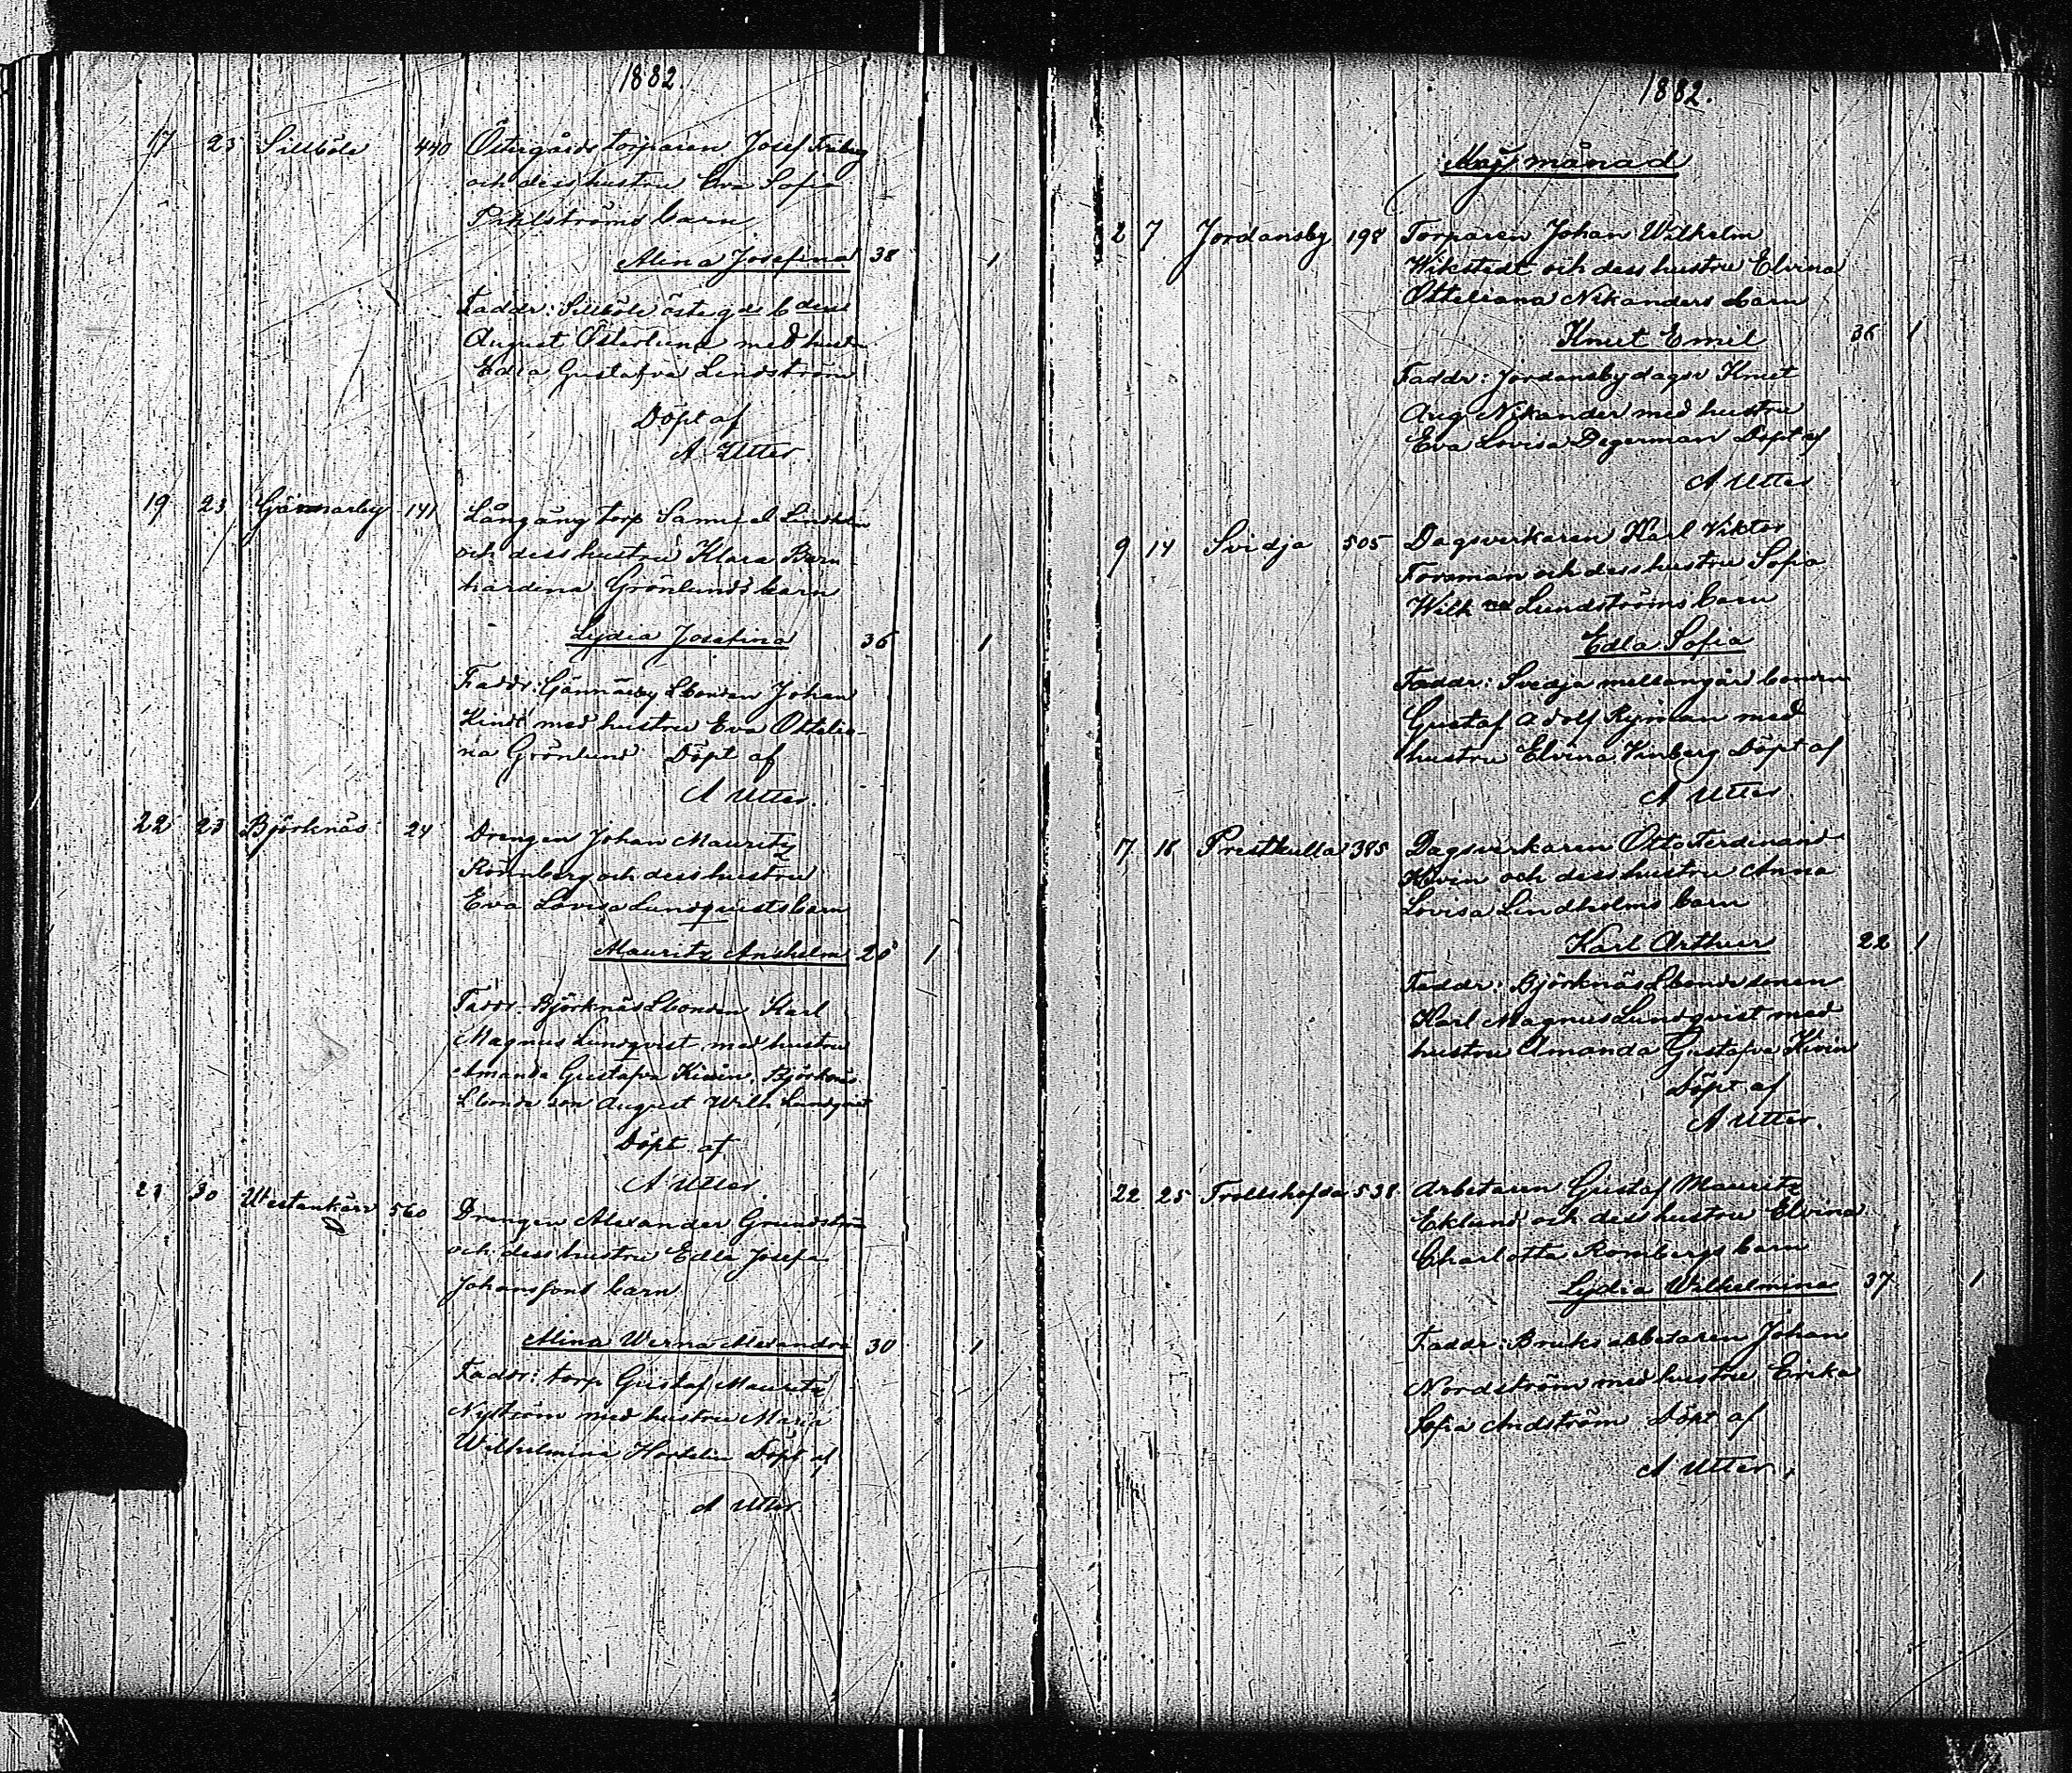 1882.
17 23 Sillböle 440 Östergårds torparen Josef Friberg
och dess hustru Eva Sofia
Pihlströms barn
Alina Josefina 38 1
Faddr: Sillböle östergds bdess
August Österlund med hustru
Edla Gustafva Lindström
Döpt af
A Utter
19 23 Gännarby 141 Långäng torp Samuel Lindholm
och dess hustru Klara Bern
hardina Grönlunds barn
Lydia Josefina 36 1
Faddr: Gännärby Lbonden Johan
Kindt med hustru Eva Ottelia-
na Grönlund Döpt af
A Utter.
22 23 Björknäs 24 Drengen Johan Mauritz
Rönnberg och dess hustru
Eva Lovisa Lundqvists barn
Mauritz Anshelm 20 1
Faddr: Björknäs Lbonden Karl
Magnus Lundqvist med hustru
Amanda Gustafva Kivin, Björknäs
Lbonde son August Wilh Lundqvist
Döpt af
A Utter
21 30 Westankärr 560 Drengen Alexander Grundström
och dess hustru Edla Josefa
Johanssons barn
Alina Werna Alexandra 30 1
Faddr: torp Gustaf Mauritz
Nyström med hustru Maria
Wilhelmina Hortelin Döpt af
A Utter
1882.
Maj månad
2 7 Jordansby 198 Torparen Johan Wilhelm
Wikstedt och dess hustru Elvina
Otteliana Nikanders barn
Knut Emil 36 1
Faddr: Jordansby dagsv Knut
Aug Nikander med hustru
Eva Lovisa Degerman Döpt af
A Utter
9 14 Svidja 505 Dagsverkaren Karl Viktor
Forsman och dess hustru Sofia
Wilh na Lundströms barn
Edla Sofia
Faddr: Svidja mellangård bonden
Gustaf Adolf Ryman med
hustru Elvina Kinberg Döpt af
A Utter.
7 18 Prestkulla 385 Dagsverkaren Otto Ferdinand
Kivin och dess hustru Anna
Lovisa Lindholms barn
Karl Arthur 22 1
Faddr: Björknäs Lbonde sonen
Karl Magnus Lundqvist med
hustru Amanda Gustafva Kivin
Döpt af
A Utter.
22 25 Trollshofda 538 Arbetaren Gustaf Mauritz
Eklund och dess hustru Elvina
Charlotta Rombergs barn
Lydia Wilhelmina 37 1
Faddr: Bruks arbetaren Johan
Nordström med hustru Erika
Sofia Andström Döpt af
A Utter.